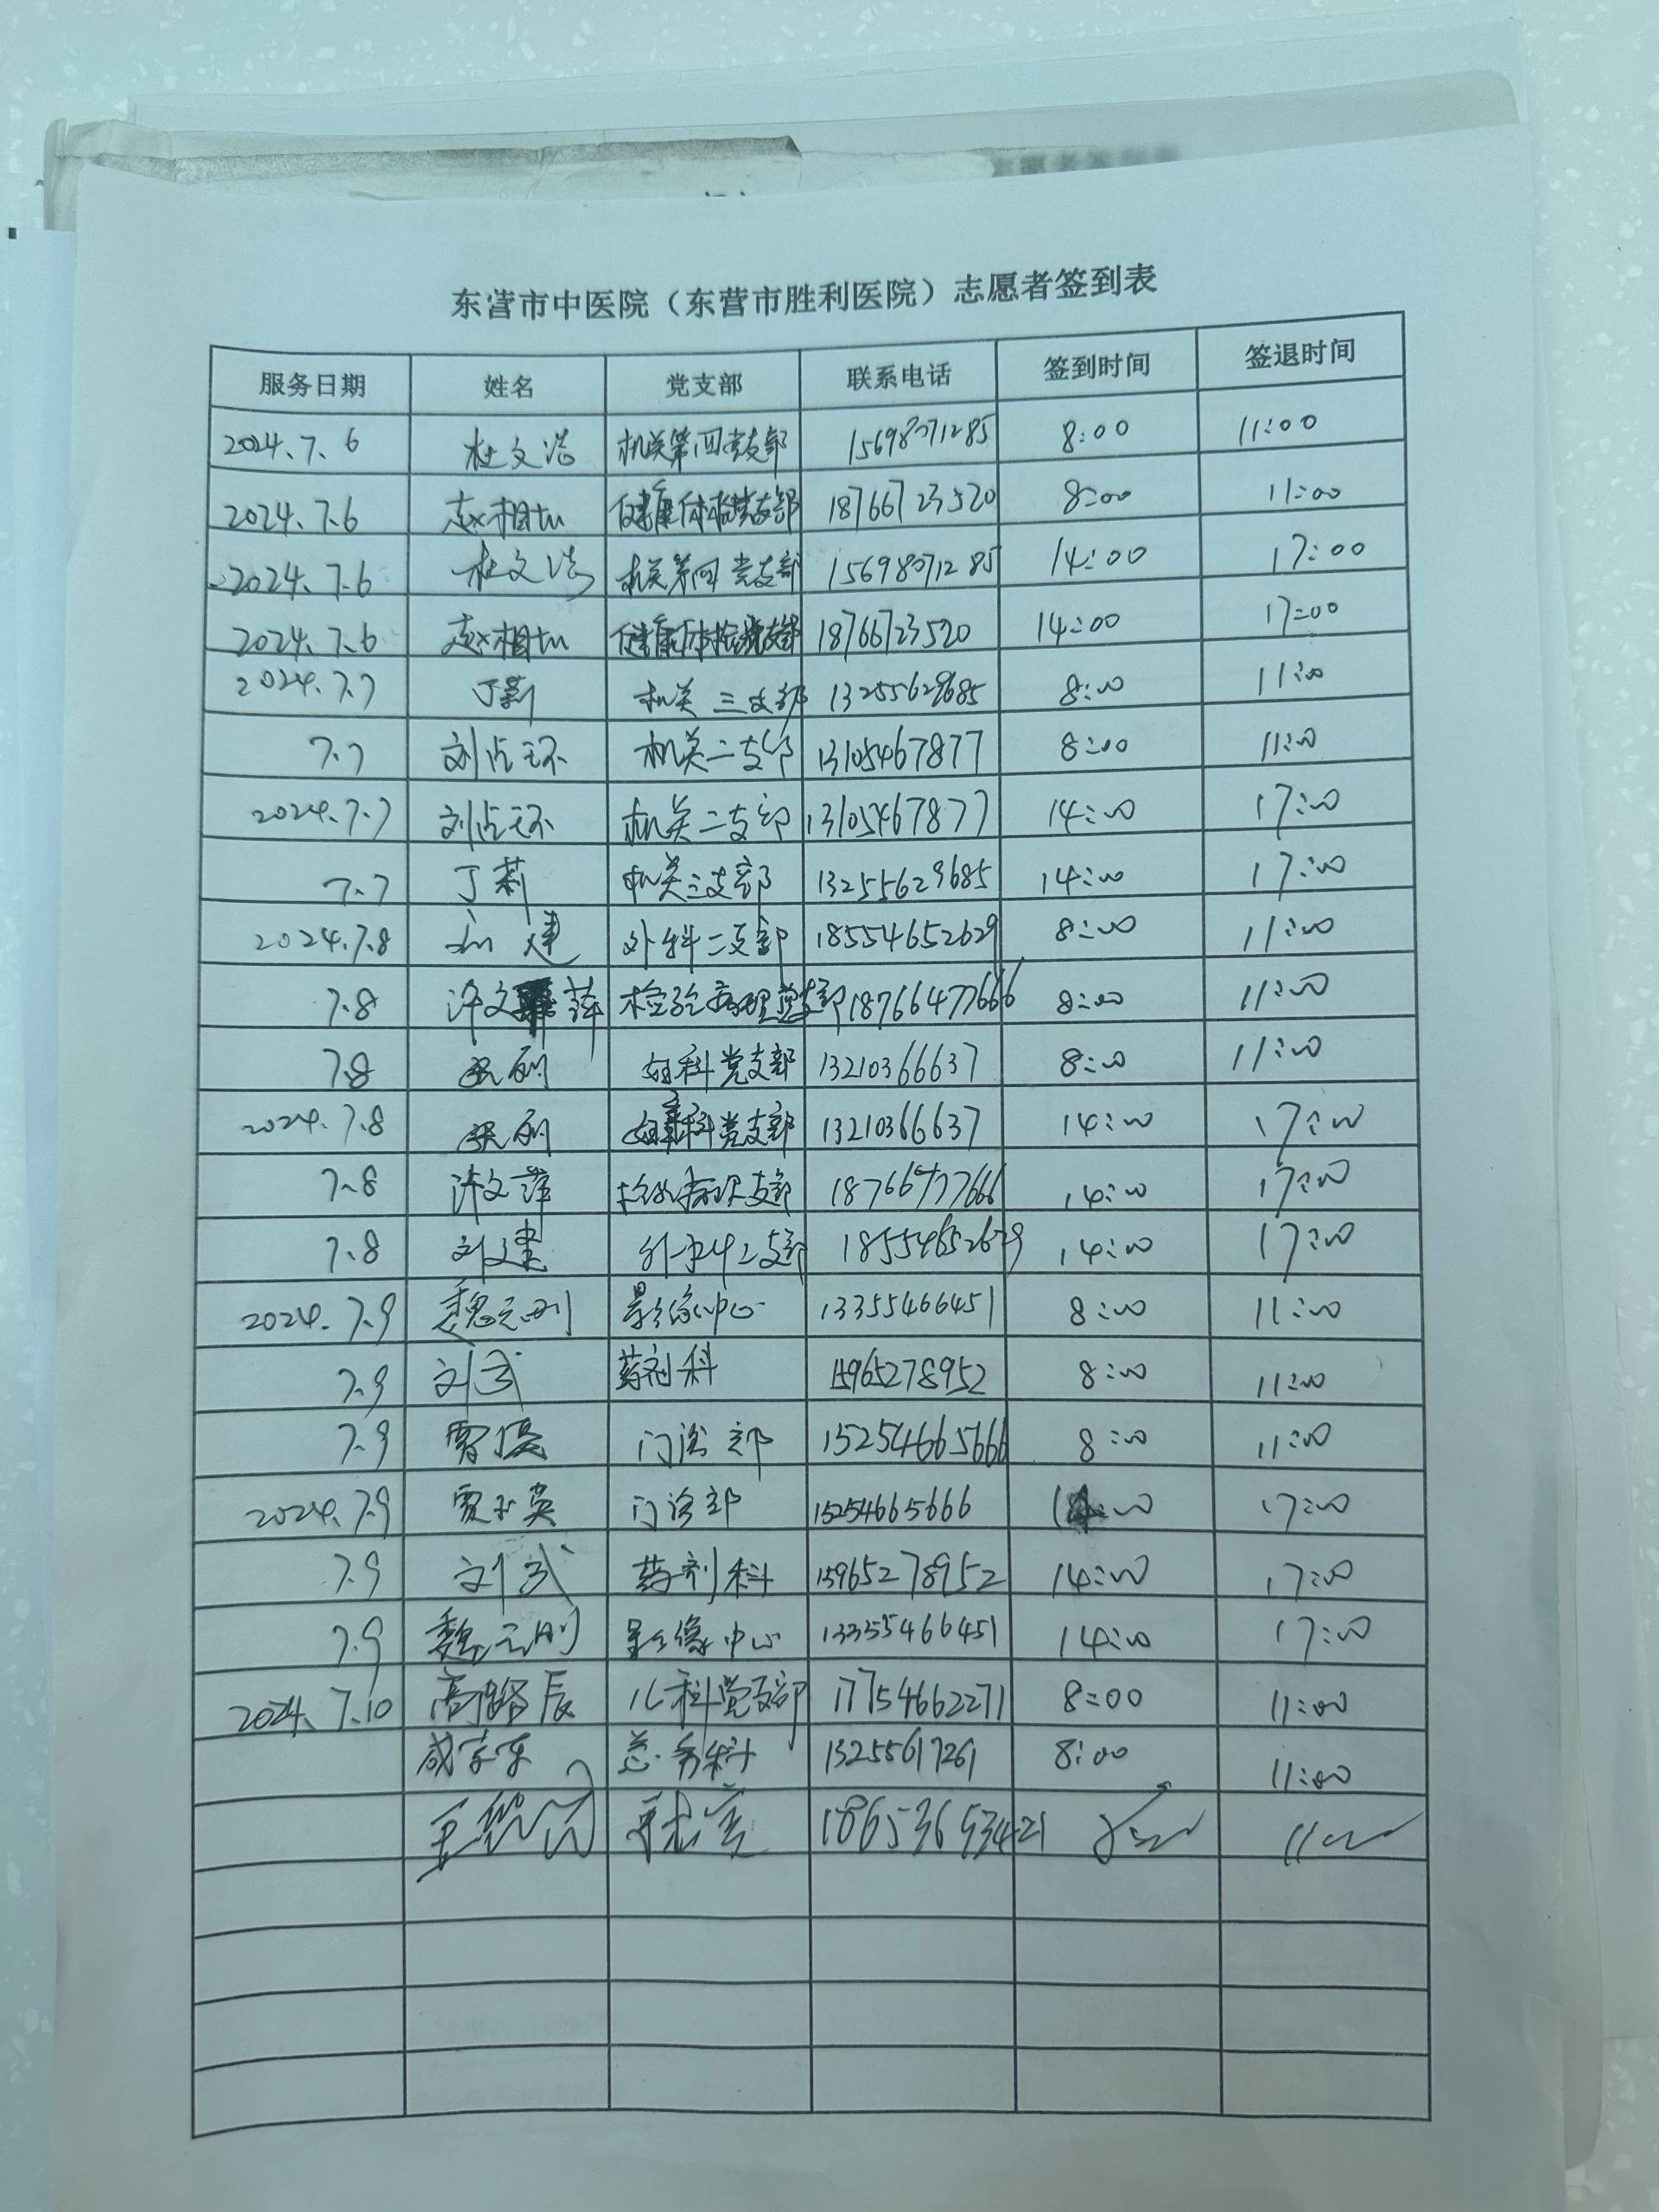 东营市中医院（东营市胜利医院）志愿者签到表
服务日期 姓名 党支部 联系电话 签到时间 签退时间
2024.7.6 杜文浩 机关第四党支部 15698071285 8:00 11:00
2024.7.6 赵相如 健康体检党支部 18766723520 8:00 11:00
2024.7.6 杜文浩 机关第四党支部 15698071285 14:00 17:00
2024.7.6 赵相如 健康体检党支部 18766723520 14:00 17:00
2024.7.7 丁莉 机关三支部 13255629685 8:00 11:00
7.7 刘占环 机关二支部 13105467877 8:00 11:00
2024.7.7 刘占环 机关二支部 13105467877 14:00 17:00
7.7 丁莉 机关三支部 13255629685 14:00 17:00
2024.7.8 刘建 外科二支部 18554652629 8:00 11:00
7.8 许文萍 检验病理党支部 18766477666 8:00 11:00
7.8 妇科党支部 13210366637 8:00 11:00
2024.7.8 科党支部 13210366637 14:00 17:00
7.8 许文萍 支部 18766477666 14:00 17:00
7.8 刘建 外科二支部 18554652629 14:00 17:00
2024.7.9 魏元刚 影像中心 13355466451 8:00 11:00
7.9 刘武 药剂科 15965278952 8:00 11:00
7.9 贾 门诊部 15254665666 8:00 11:00
2024.7.9 贾 英 门诊部 15254665666 14:00 17:00
7.9 刘武 药剂科 15965278952 14:00 17:00
7.9 魏元刚 影像中心 13355466451 14:00 17:00
2024.7.10 高 辰 儿科党支部 17754662271 8:00 11:00
总务科 13255617261 8:00 11:00
王 18653653421